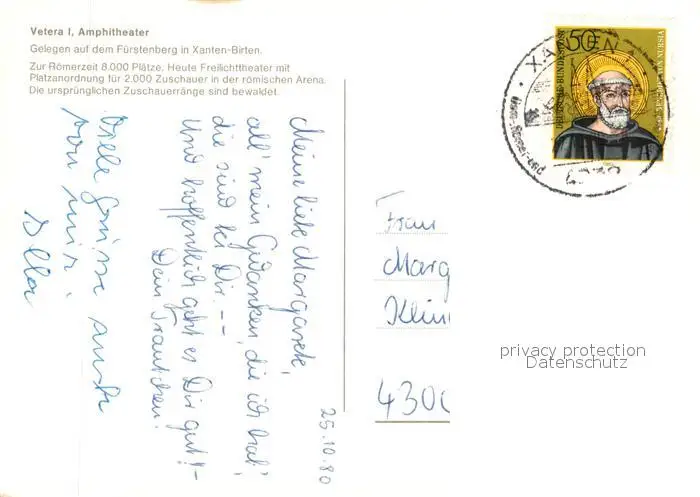 Vetera I, Amphitheater
Gelegen auf dem Fürstenberg in Xanten-Birten.
Zur Römerzeit 8.000 Plätze. Heute Freilichttheater mit
Platzanordnung für 2.000 Zuschauer in der römischen Arena.
Die ursprünglichen Zuschauerränge sind bewaldet.
25.10.80
Meine liebe Margarete,
all' mein Gedanken, die ich hab',
die sind bei Dir. --
Und hoffentlich geht es Dir gut! -
Dein Trautchen!
Viele Grüsse auch
von mir.
50
DEUTSCHE BUNDESPOST
VON NURSIA
XANTEN
Frau
Marg
Klein
430
privacy protection
Datenschutz